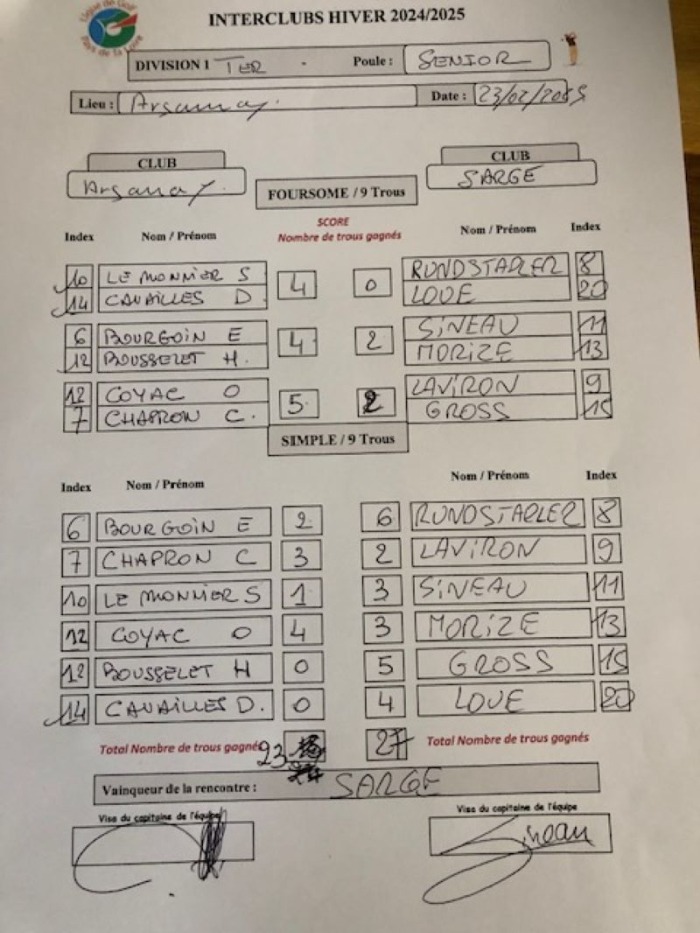 Ligue de Golf
Pays de la Loire
INTERCLUBS HIVER 2024/2025
DIVISION 1 TER Poule : SENIOR
Lieu : Date : 23/02/2025
CLUB CLUB
SARGE
FOURSOME / 9 Trous
SCORE
Index Nom / Prénom Nombre de trous gagnés Nom / Prénom Index
10 LE MONNIER S 4 0 RUNDSTADLER 8
14 CAVAILLES D LOUE 20
6 BOURGOIN E 4 2 SINEAU 11
12 BOUSSELET H. MORIZE 13
12 COYAC O 5 2 LAVIRON 9
7 CHAPRON C. GROSS 15
SIMPLE / 9 Trous
Index Nom / Prénom Nom / Prénom Index
6 BOURGOIN E 2 6 RUNDSTADLER 8
7 CHAPRON C 3 2 LAVIRON 9
10 LE MONNIER S 1 3 SINEAU 11
12 COYAC O 4 3 MORIZE 13
12 BOUSSELET H 0 5 GROSS 15
14 CAVAILLES D. 0 4 LOUE 20
Total Nombre de trous gagnés 23 27 Total Nombre de trous gagnés
Vainqueur de la rencontre : SARGE
Visa du capitaine de l'équipe Visa du capitaine de l'équipe
Sineau